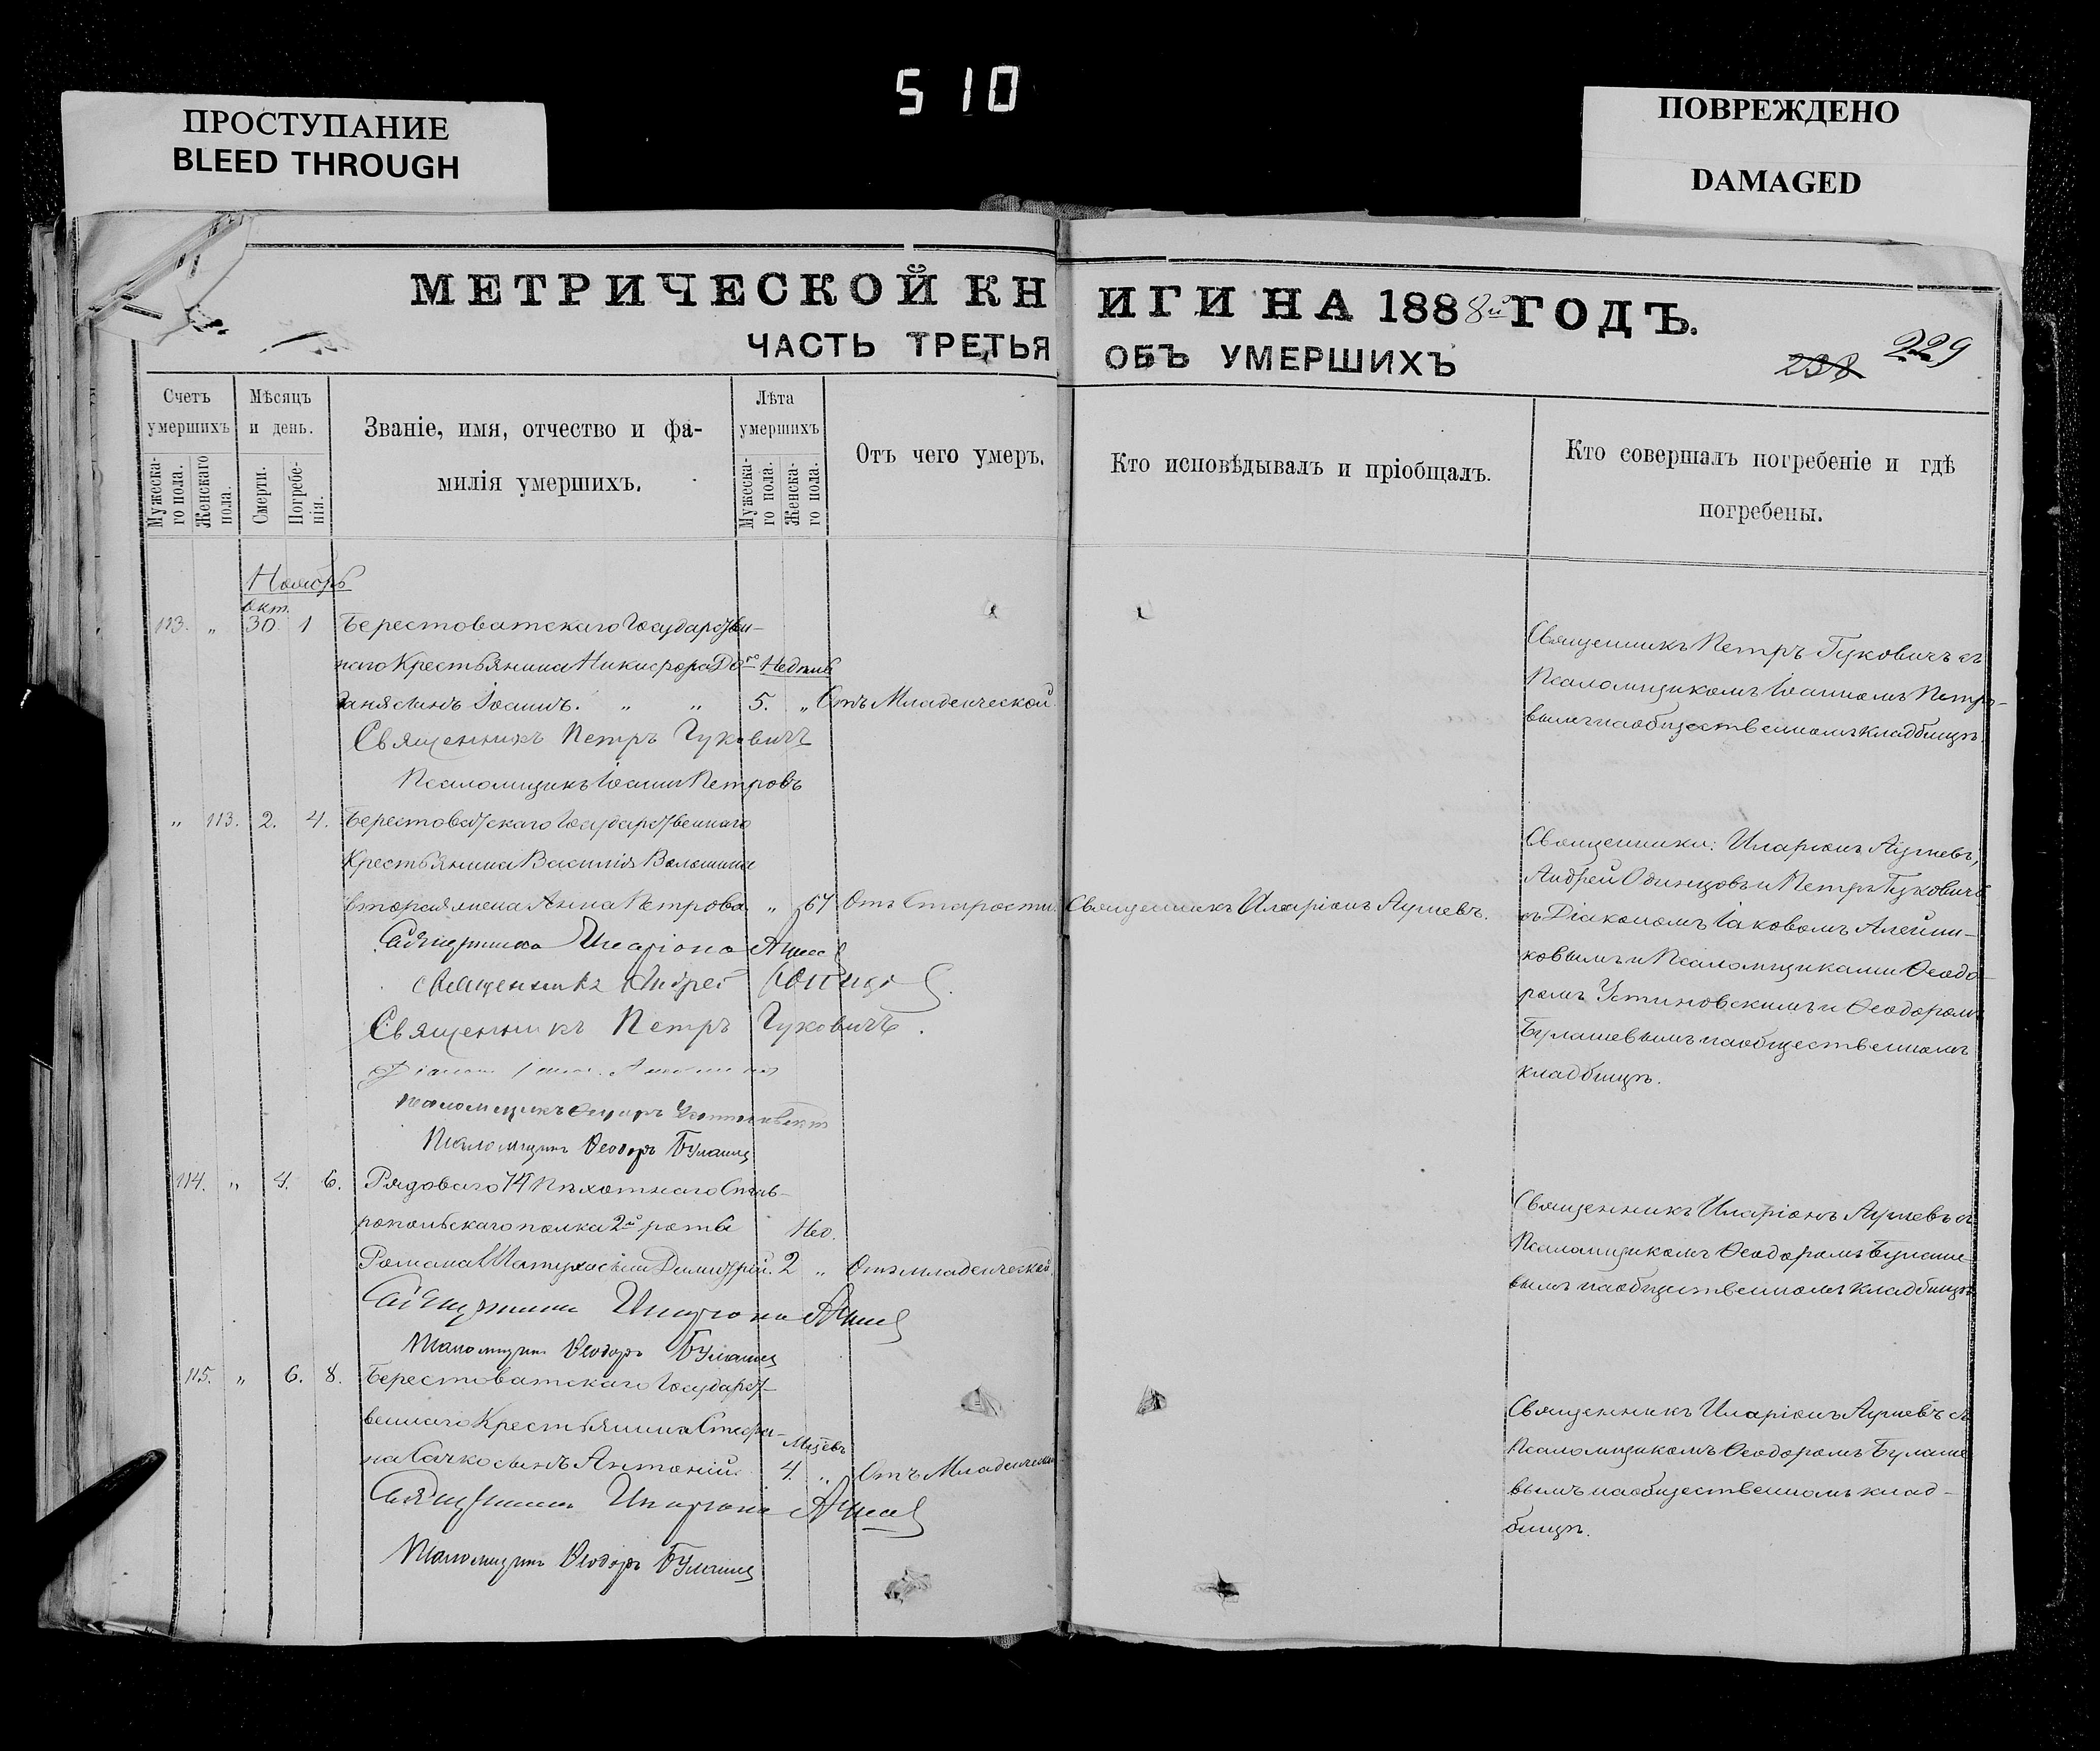 510
ПРОСТУПАНИЕ
BLEED THROUGH
ПОВРЕЖДЕНО
DAMAGED
МЕТРИЧЕСКОЙ КНИГИ НА 1888й ГОДЪ.
ЧАСТЬ ТРЕТЬЯ ОБЪ УМЕРШИХЪ
238 229
Счетъ умершихъ
Мужеска-го пола.
Женскаго пола.
Мѣсяцъ и день.
Смерти.
Погребе-нія.
Званіе, имя, отчество и фа-
милія умершихъ.
Лѣта умершихъ
Мужеска-го пола.
Женска-го пола.
Отъ чего умеръ.
Кто исповѣдывалъ и пріобщалъ.
Кто совершалъ погребеніе и гдѣ
погребены.
Ноябрь
окт.
113. " 30 1 Берестоватскаго Государствен-
наго Крестьянина Никифора
сынъ Іоаннъ. " " 5. " Отъ Младенческой
Священникъ Петръ Гуковичъ
Псаломщикъ Іоаннъ Петровъ
Священникъ Петръ Гуковичъ съ
Псаломщикомъ Іоанномъ Петро-
вымъ на общественномъ кладбищѣ.
" 113. 2. 4. Берестоватскаго Государственнаго
Крестьянина Василія Волошина
вторая жена Анна Петрова " 67 Отъ Старости. Священникъ Иларіонъ
Священникъ Иларіонъ
Священникъ Андрей Одинцовъ
Священникъ Петръ Гуковичъ.
Псаломщикъ Феодоръ Устиновскій
Псаломщикъ Феодоръ Булашев
Священники: Иларіонъ
Андрей Одинцовъ и Петръ Гуковичъ
съ Діакономъ Іаковомъ Алейни-
ковымъ и Псаломщиками Феодо-
ромъ Устиновскимъ и Феодоромъ
Булашевымъ на общественномъ
кладбищѣ.
114. " 4. 6. Рядоваго 74 Пѣхотнаго Став-
ропольскаго полка 2й роты Нед.
Романа сынъ Димитрій. 2 " Отъ младенческой.
Священникъ Иларіонъ
Псаломщикъ Феодоръ Булашев
Священникъ Иларіонъ съ
Псаломщикомъ Феодоромъ Булаше-
вымъ на общественномъ кладбищѣ
115. " 6. 8. Берестоватскаго Государст-
веннаго Крестьянина Стефа-
на Сачко сынъ Антоній. Мцѣвъ 4. " Отъ Младенческой
Священникъ Иларіонъ
Псаломщикъ Феодоръ Булашев
Священникъ Иларіонъ съ
Псаломщикомъ Феодоромъ Булаше-
вымъ на общественномъ клад-
бищѣ.